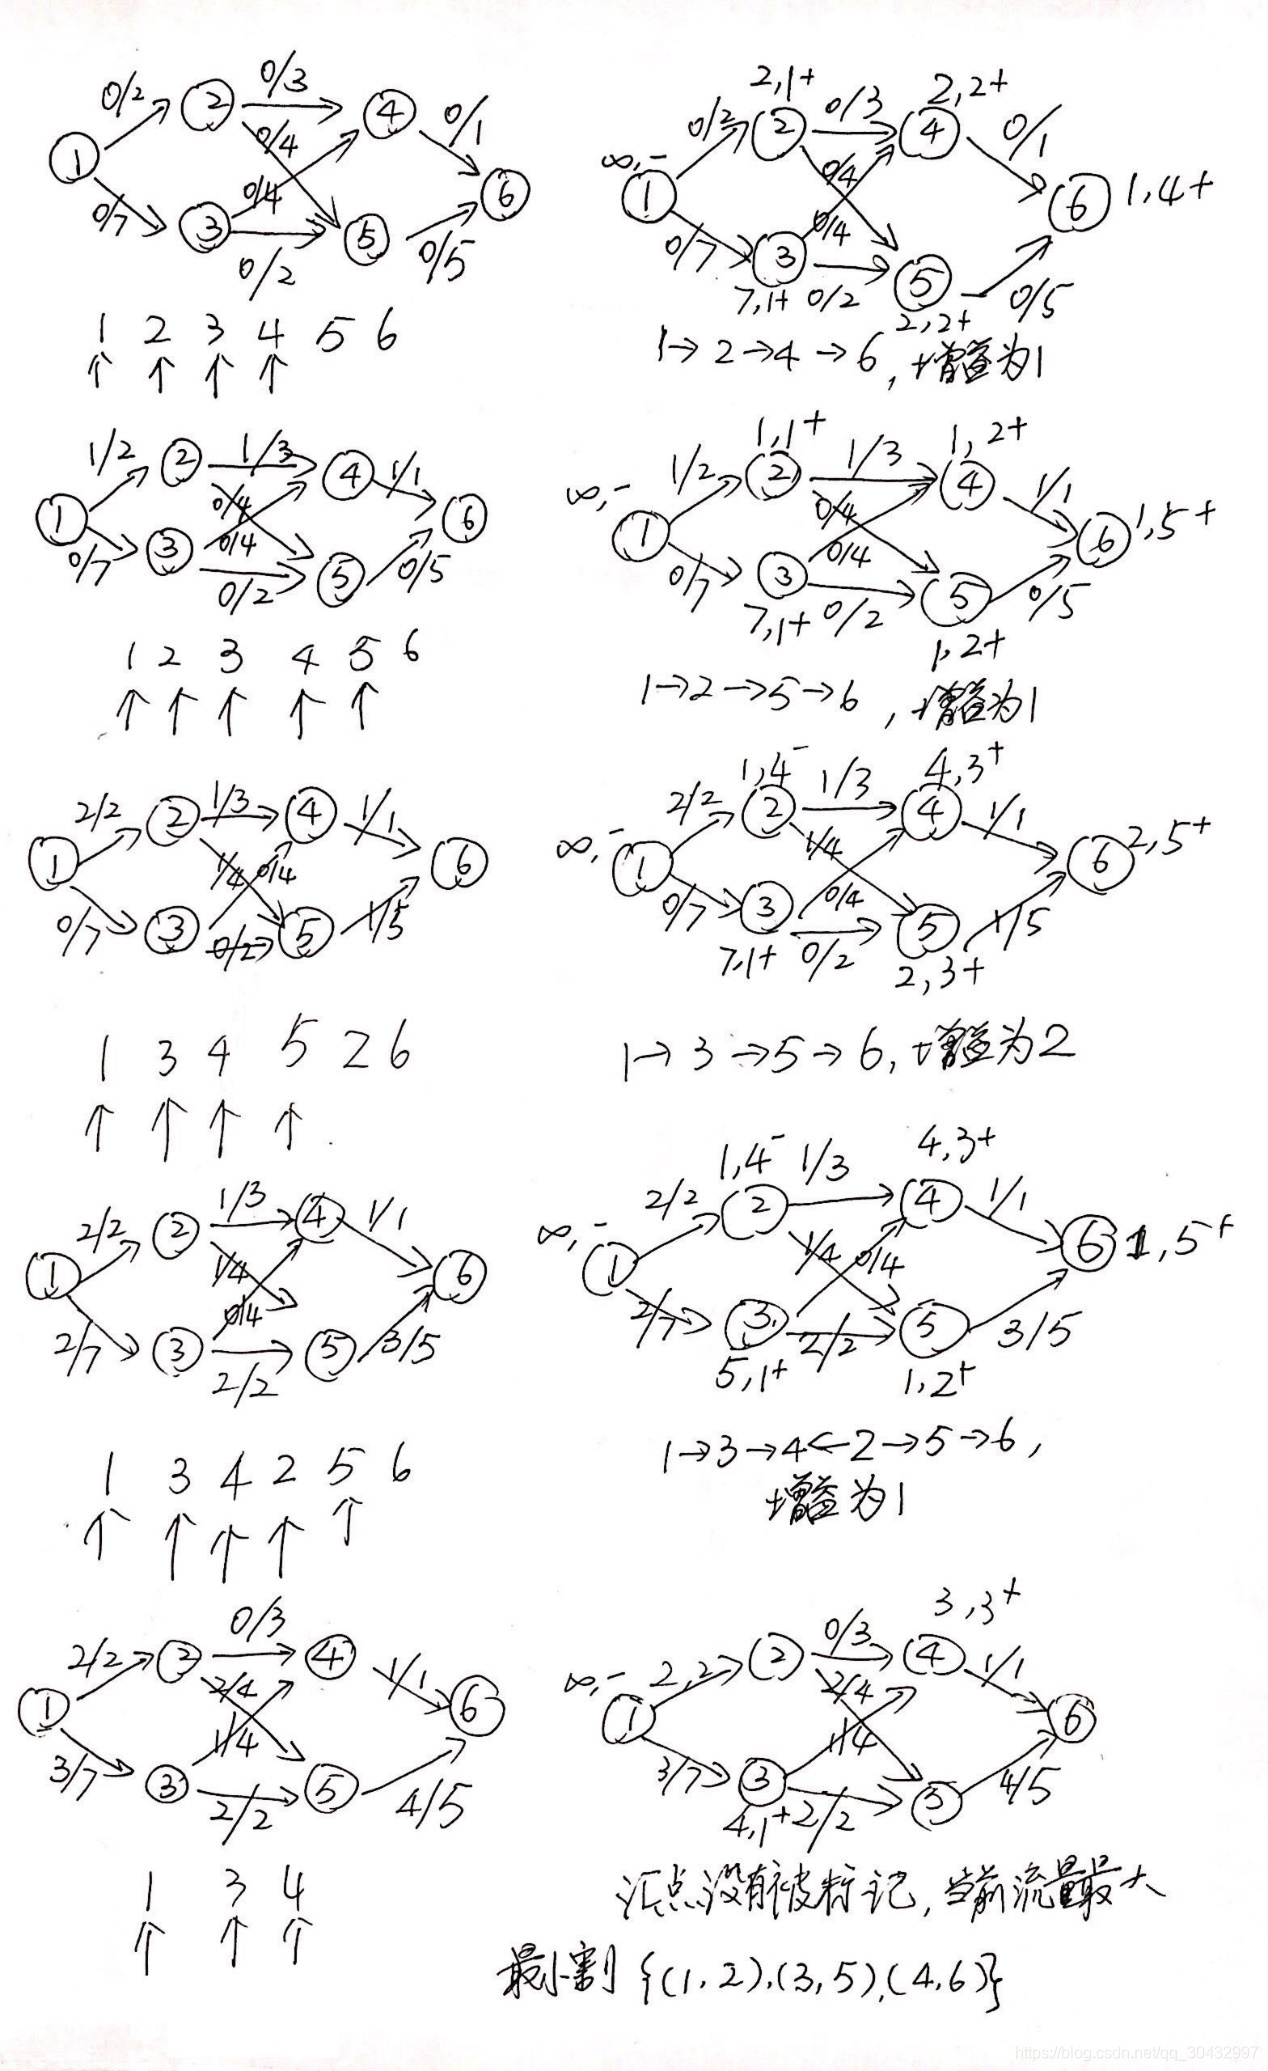 0/2 0/3 0/1
1 2 4 6
0/4 0/4
0/7 3 0/2 5 0/5
1 2 3 4 5 6
2,1+ 2,2+
∞,- 0/2 2 0/3 4 0/1
1 0/4 6 1,4+
0/7 3 0/4 5
7,1+ 0/2 2,2+ 0/5
1→2→4→6,增益为1
1/2 2 1/3 4 1/1
1 0/4 6
0/7 3 0/4 0/2 5 0/5
1 2 3 4 5 6
1,1+ 1,2+
∞,- 1/2 2 1/3 4 1/1
1 0/4 6 1,5+
0/7 3 0/4 5 0/5
7,1+ 0/2 1,2+
1→2→5→6,增益为1
2/2 2 1/3 4 1/1
1 1/4 0/4 6
0/7 3 0/2 5 1/5
1 3 4 5 2 6
1,4- 4,3+
∞,- 2/2 2 1/3 4 1/1
1 1/4 6 2,5+
0/7 3 0/4 5 1/5
7,1+ 0/2 2,3+
1→3→5→6,增益为2
2/2 2 1/3 4 1/1
1 1/4 6
2/7 3 0/4 2/2 5 3/5
1 3 4 2 5 6
1,4- 4,3+
∞,- 2/2 2 1/3 4 1/1
1 1/4 0/4 6 1,5+
2/7 3 2/2 5 3/5
5,1+ 1,2+
1→3→4←2→5→6,
增益为1
2/2 2 0/3 4 1/1
1 2/4 6
3/7 3 1/4 2/2 5 4/5
1 3 4
3,3+
∞,- 2,2 2 0/3 4 1/1
1 2/4 6
3/7 3 1/4 5 4/5
4,1+ 2/2
汇点没有被标记,当前流量最大
最小割{(1,2),(3,5),(4,6)}
https://blog.csdn.net/qq_30432997